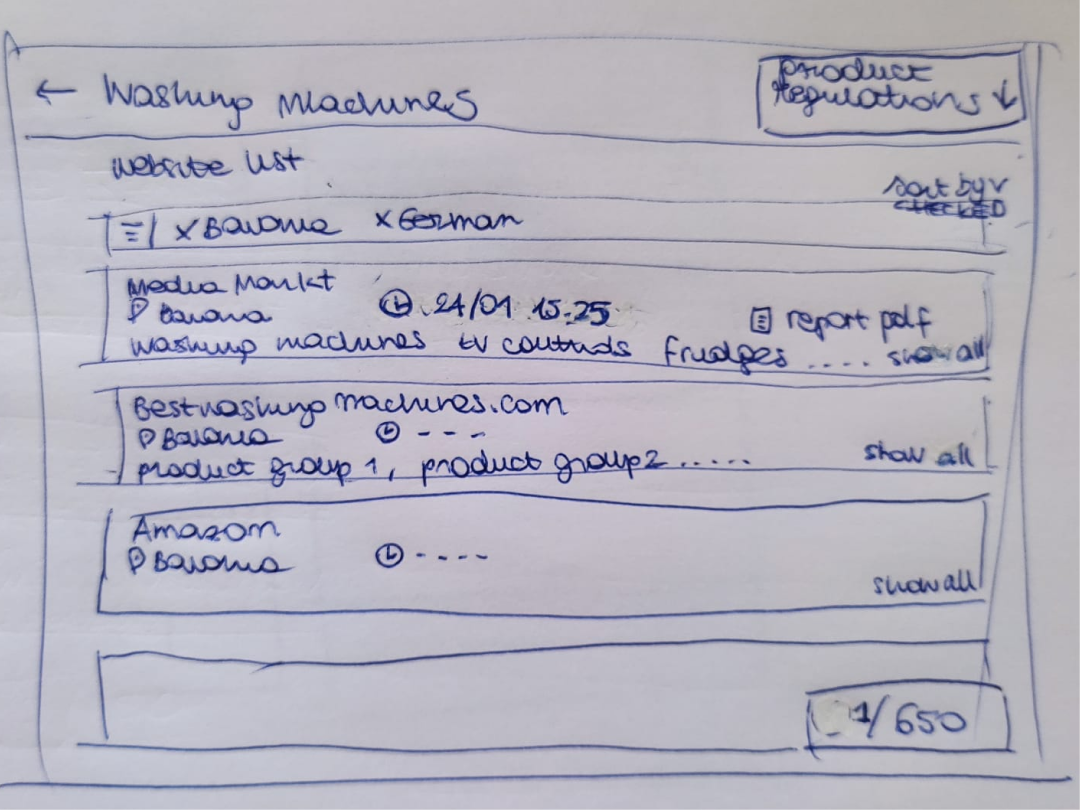 ← Washing Machines
Product
Regulations ↓
Website list
sort by v
CHECKED
x Bavaria x German
Media Markt
Bavaria 24/01 15:25 report pdf
washing machines tv controls fridges .... show all
Bestwashing machines.com
Bavaria - - -
product group 1, product group 2 ..... show all
Amazon
Bavaria - - - -
show all
1/650